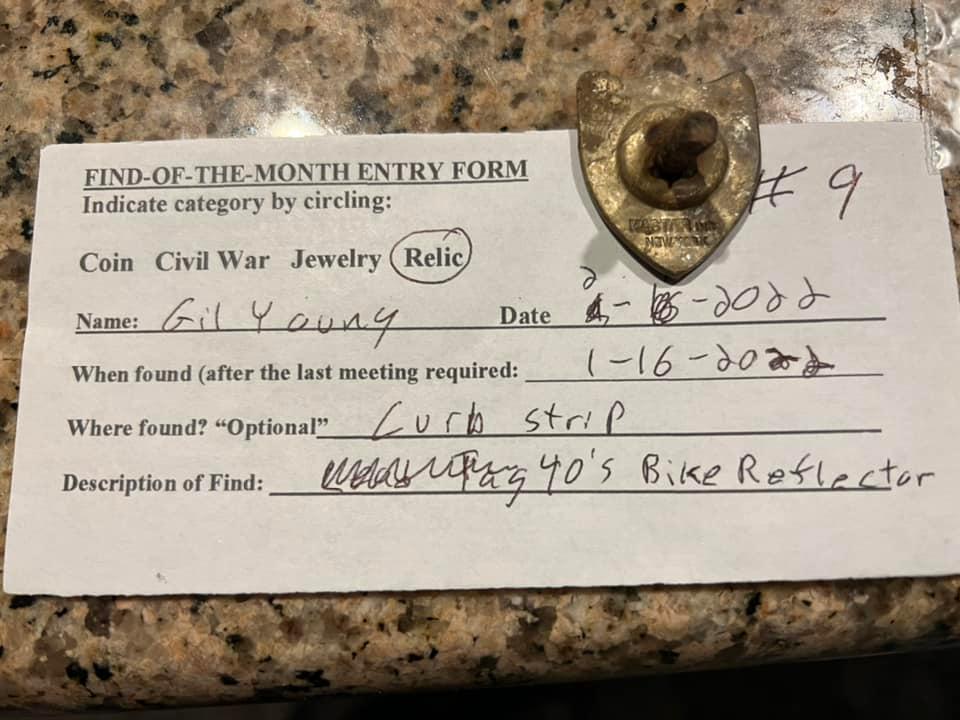 FIND-OF-THE-MONTH ENTRY FORM
Indicate category by circling:
# 9
Coin Civil War Jewelry Relic
NEW YORK
Name: Gil Young Date 2- -2022
When found (after the last meeting required: 1-16-2022
Where found? "Optional" Curb strip
Description of Find: Tag 40's Bike Reflector